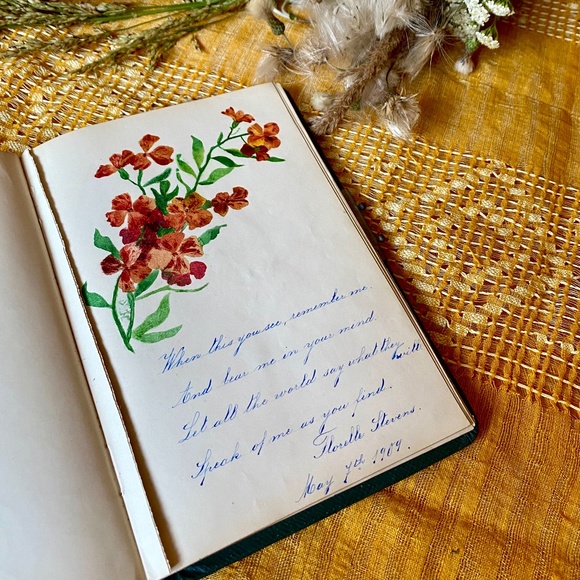 When this you see, remember me.
And bear me in your mind.
Let all the world say what they will
Speak of me as you find.
Florelle Stevens.
May 7th 1909.